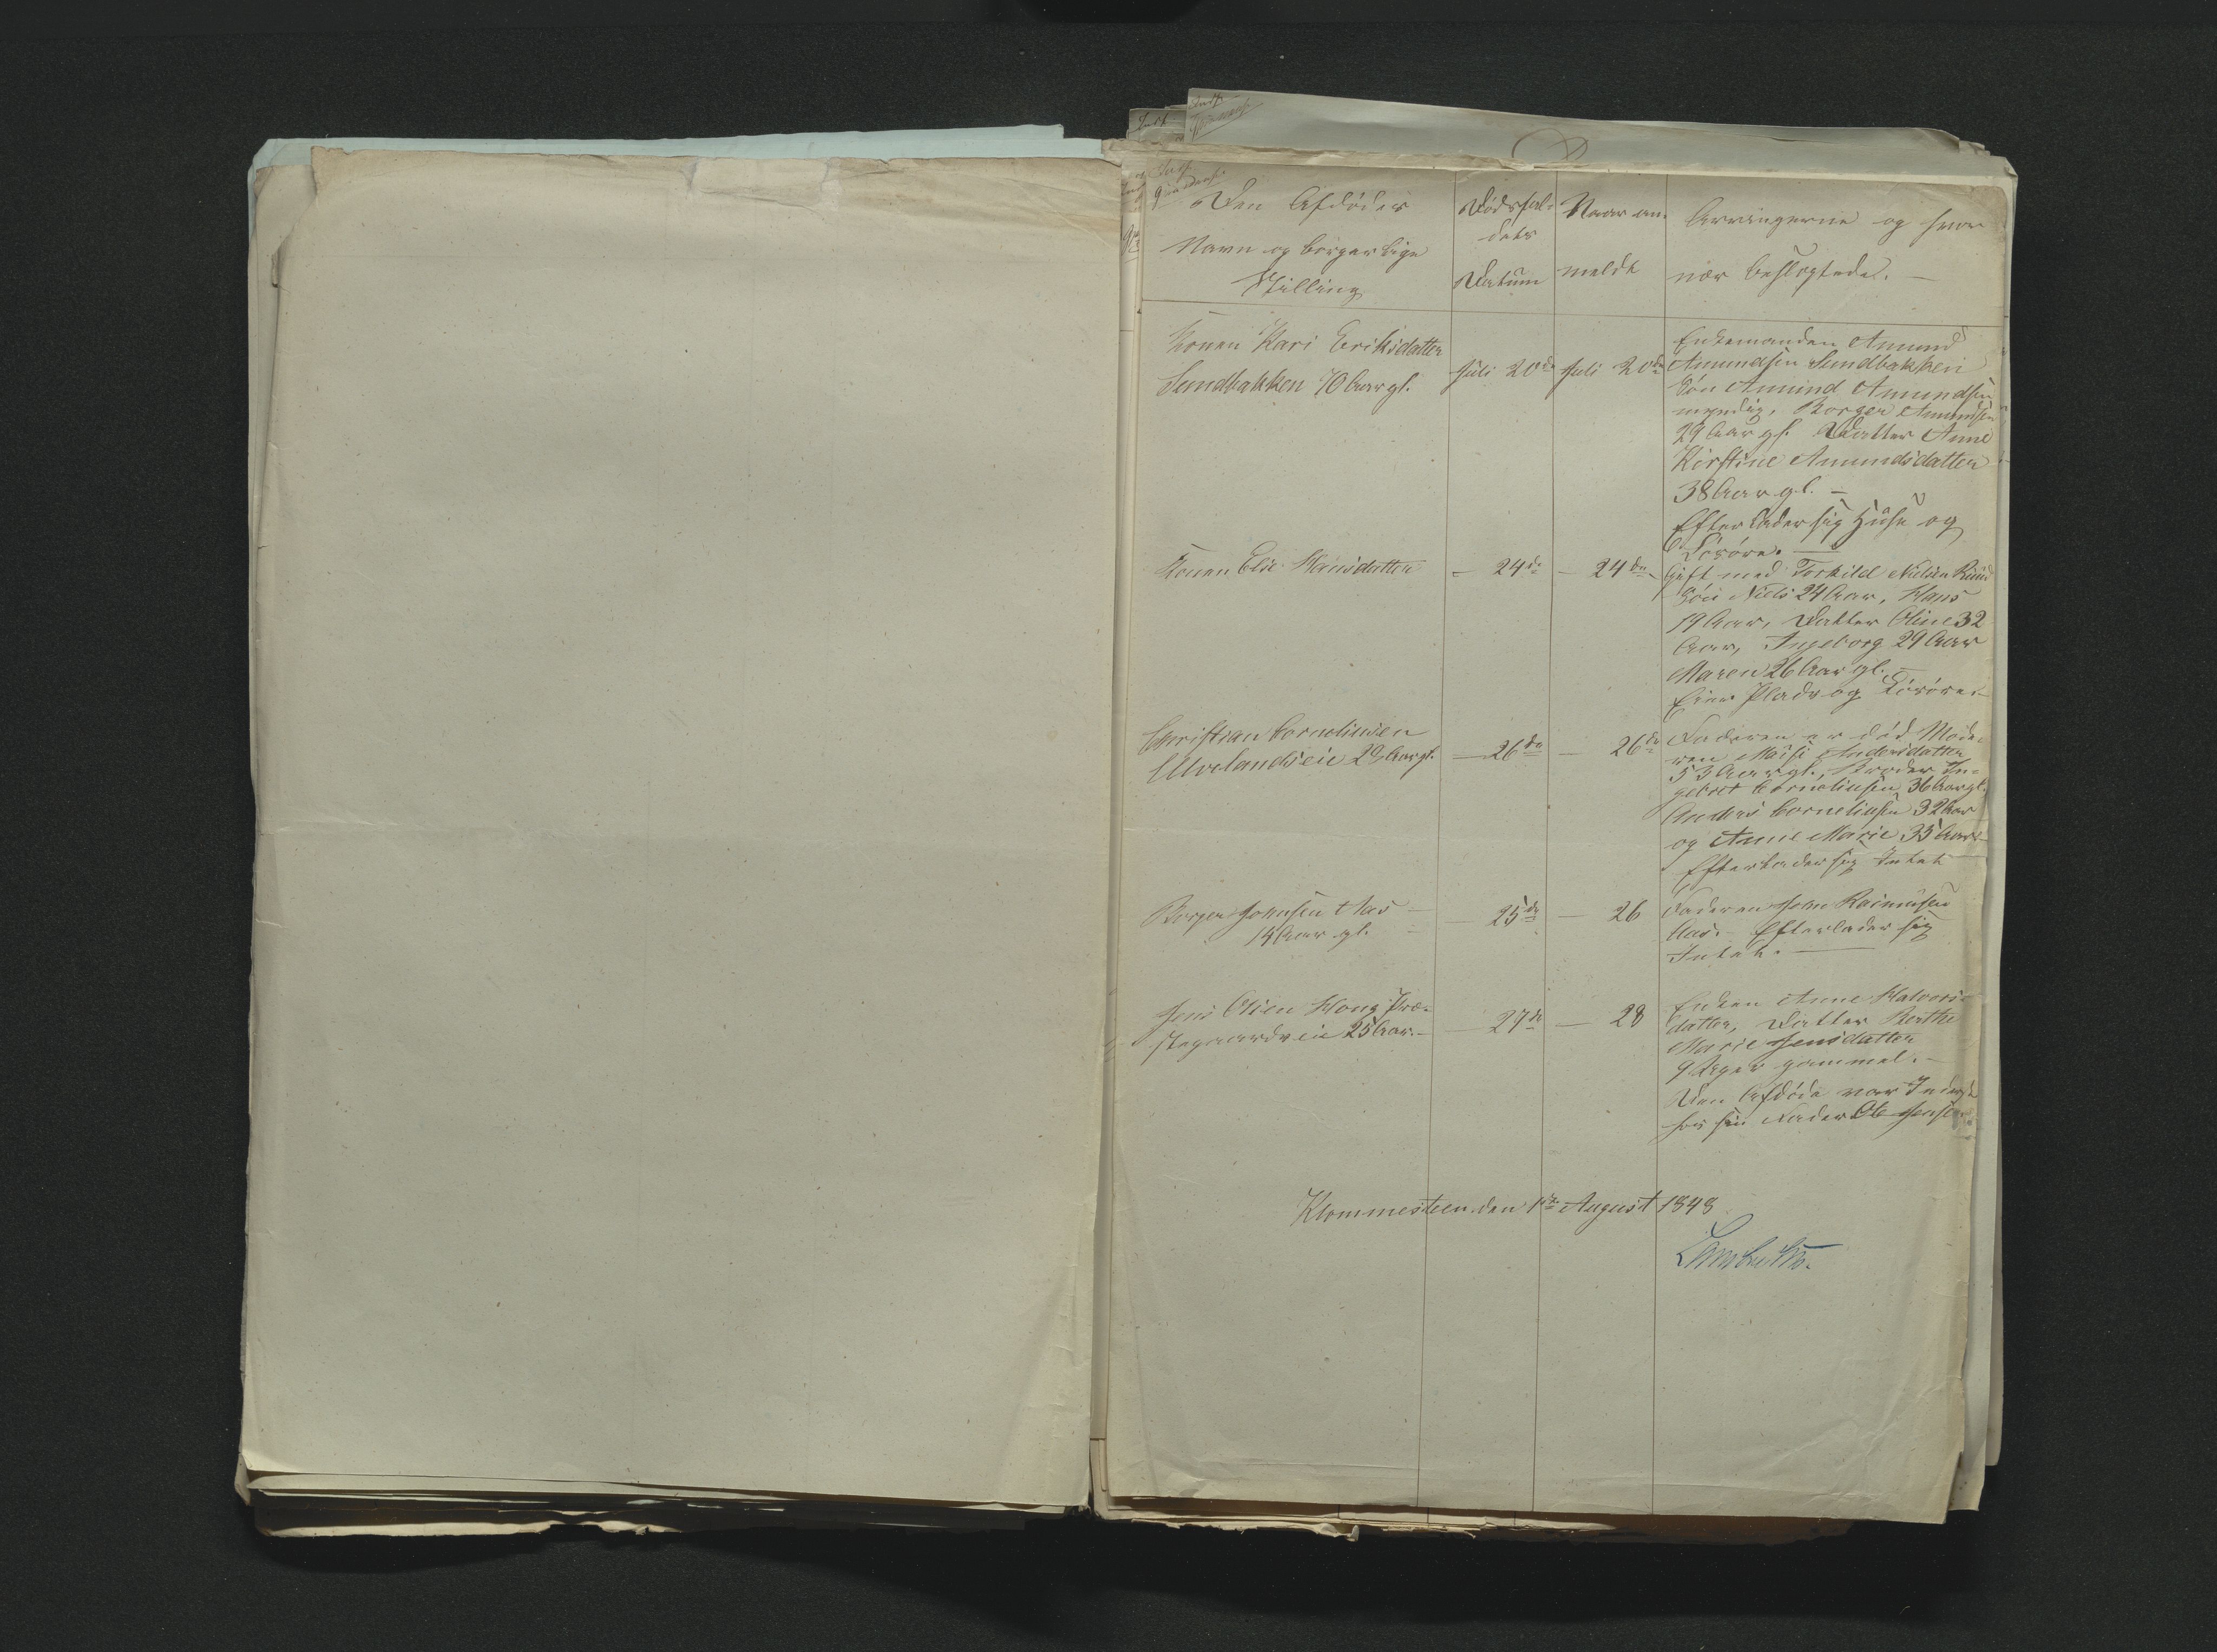 Den Afdödes
Navn og borgerlige
Stilling
Dödsfal-
dets
Datum
Naar an-
meldt
Arvingerne og hvor
nær beslegtede. —
Konen Kari Eriksdatter
Sundbakken 70 Aar gl.
Juli 20de
Juli 20de
Enkemanden Amund
Amundsen Sundbakken
Sön Amund Amundsen
myndig, Borger Amundsen
29 Aar gl. Datter Anne
Kirstine Amundsdatter
38 Aar gl. —
Efterlader sig Huse og
Lösöre. —
Konen Else Hansdatter
— 24de
— 24de
Gift med Torkild Nielsen
Sön Niels 24 Aar, Hans
19 Aar, Datter Oline 32
Aar, Ingeborg 29 Aar
Maren 26 Aar gl. —
Eier Plads og Lösöre. —
Christian Corneliusen
Ulvelandseie 29 Aar gl.
— 26de
— 26de
Faderen er död Mode-
ren Andersdatter
53 Aar gl., Broder In-
gebret Corneliusen 36 Aar gl.
Anders Corneliusen 32 Aar
og Anne Marie 35 Aar
Efterlader sig Intet
Borger Johnsen Aas —
14 Aar gl.
— 25de
— 26
Faderen John Rasmusen
Aas. — Efterlader sig
Intet. —
Jens Olsen Houg Præ-
stegaardseie 25 Aar. —
— 27de
— 28
Enken Anne Halvors-
datter, Datter Berthe
Marie Jensdatter
9 Uger gammel. —
Den Afdöde var Inderst
hos sin Fader Ole Jensen
Klommesteen den 1ste August 1848